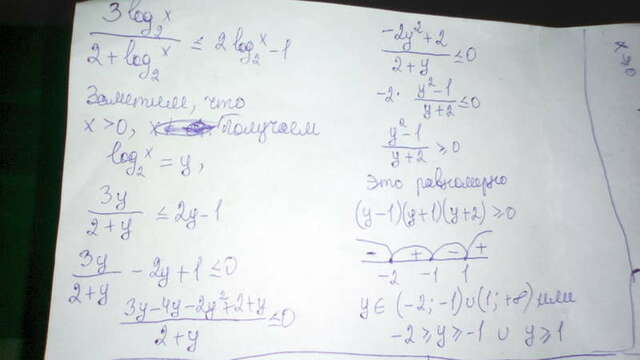 3 log₂ˣ / (2 + log₂ˣ) ≤ 2 log₂ˣ - 1
Заметим, что
x > 0, получаем
log₂ˣ = y,
3y / (2 + y) ≤ 2y - 1
3y / (2 + y) - 2y + 1 ≤ 0
(3y - 4y - 2y² + 2 + y) / (2 + y) ≤ 0
(-2y² + 2) / (2 + y) ≤ 0
-2 · (y² - 1) / (y + 2) ≤ 0
(y² - 1) / (y + 2) ≥ 0
Это равномерно
(y - 1)(y + 1)(y + 2) ≥ 0
- + - +
-2 -1 1
y ∈ (-2; -1) ∪ (1; +∞) или
-2 ≥ y ≥ -1 ∪ y ≥ 1